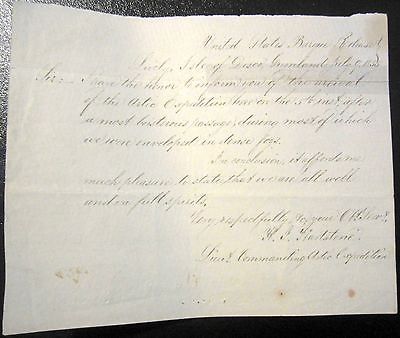 United States Barque Release
Lively, Isle of Disco, Greenland, July
Sir:— I have the honor to inform you of the arrival
of the Artic Expedition here on the 5th inst. after
a most boisterous passage, during most of which
we were enveloped in dense fogs.
In conclusion, it affords me
much pleasure to state, that we are all well
and in full spirits.
Very respectfully, your Ob. Servt.
H. J. Hartstene
Lieut. Commanding Artic Expedition